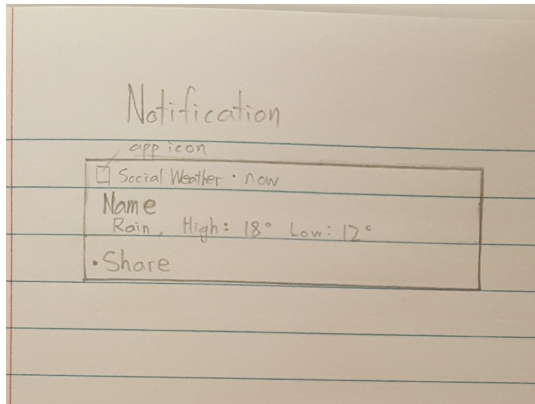 Notification
app icon
Social Weather • now
Name
Rain, High: 18° Low: 12°
• Share